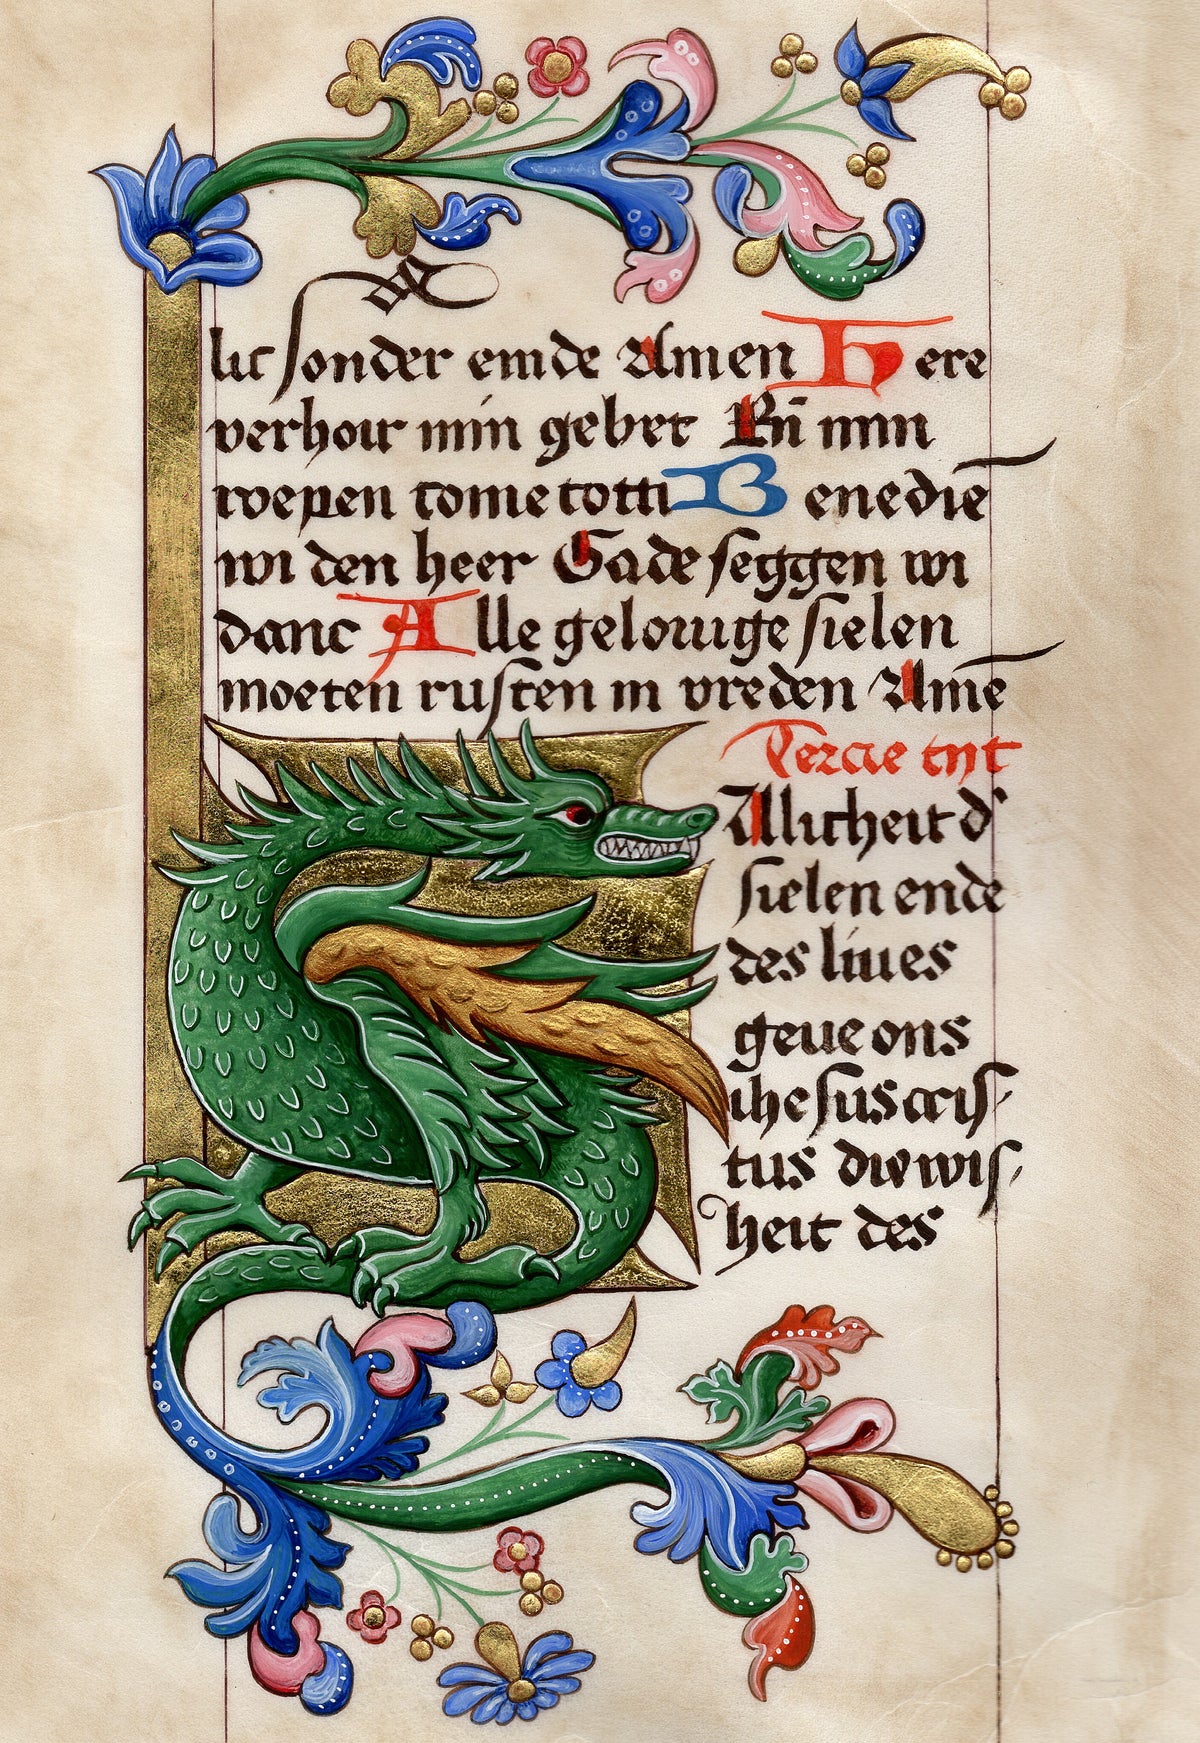 lic sonder einde Amen Here
verhoir min gebet En̄ min
roepen come totti Benedië
wi den heer Gade seggen wi
danc Alle gelouige sielen
moeten rusten in vreden Amē
Tercie tyt
Allicheit d'
sielen ende
des liues
geue ons
ihesus cris-
tus die wis-
heit des